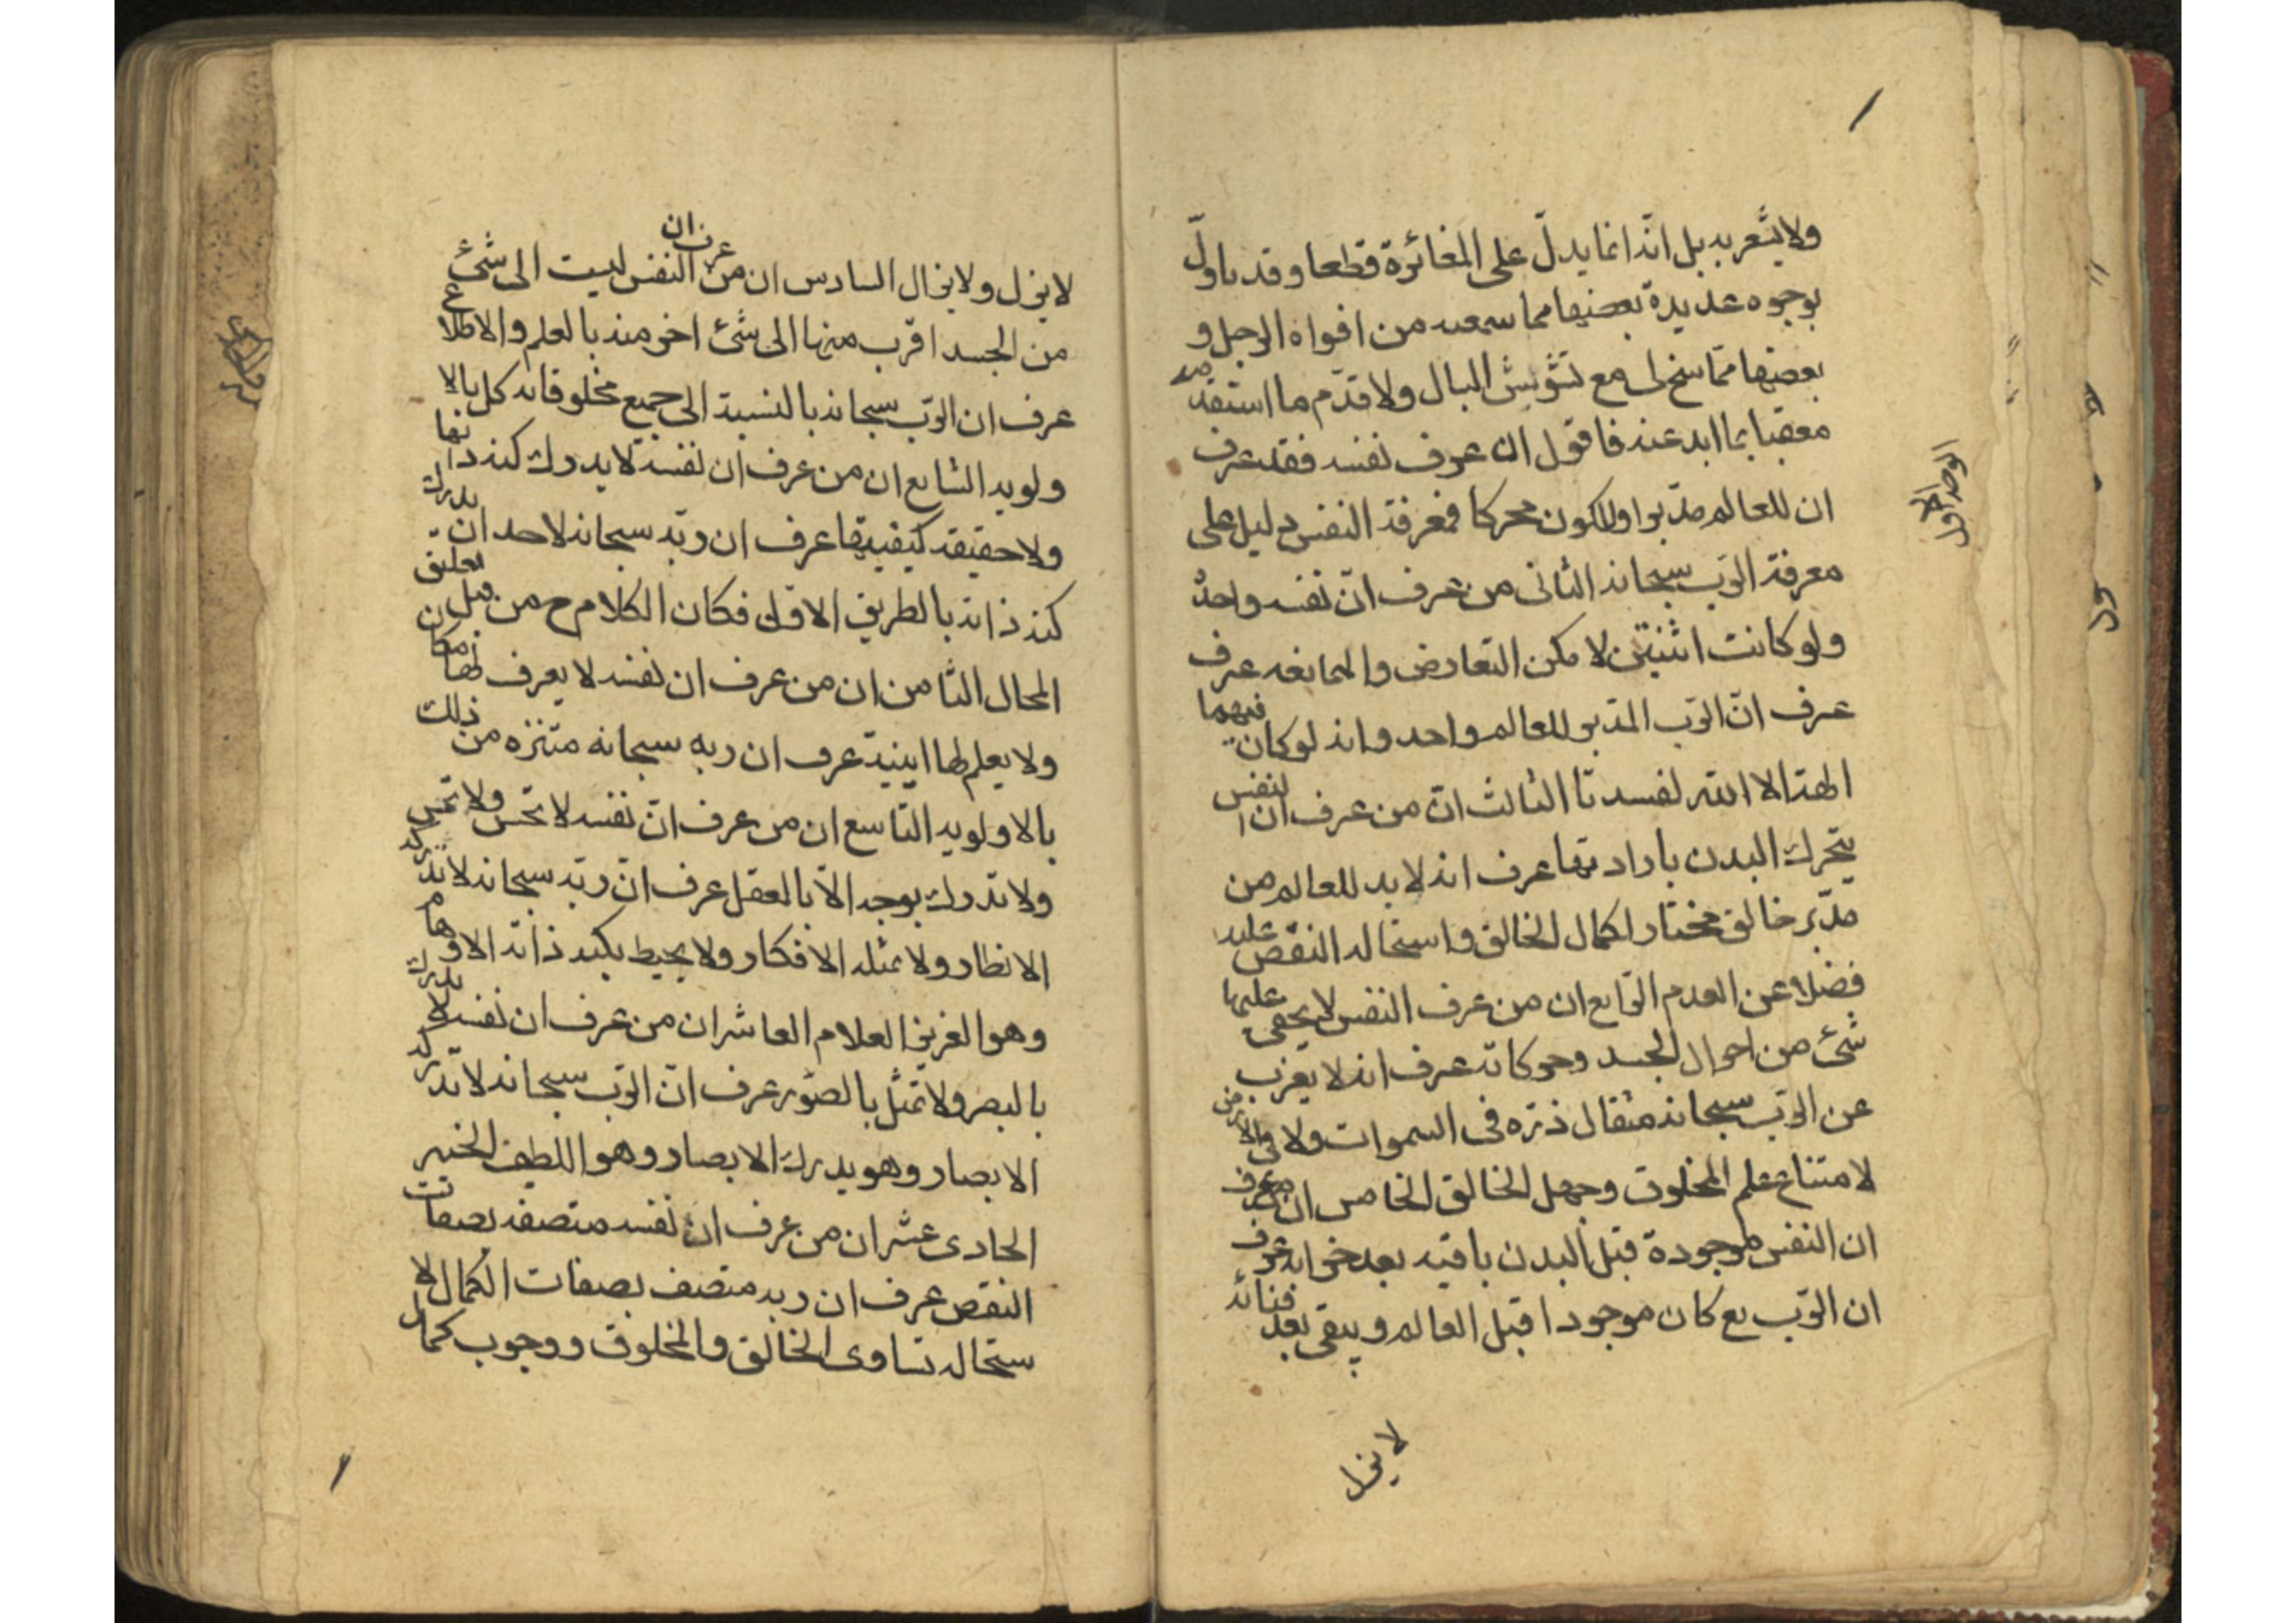 ولا يشعر به بل انّه انما يدلّ على المغائرة قطعا وقد ياوّل
بوجوه عديدة بعضها مما سمعه من افواه الرجل و
بعضها ممّا سنح لى مع تشويش البال ولا قدّم ما استفدته
معقبا بما ابد عنه فاقول ان عرف نفسه فقد عرف
الوجه الاول
ان للعالم مدّبرا وللكون محركا فمعرفة النفس دليل على
معرفة الربّ سبحانه الثانى من عرف انّ نفسه واحدة
ولو كانت اثنيتن لامكن التعارض والممانعه عرف
عرف انّ الربّ المدبر للعالم واحد وانه لو كان فيهما
الهة الا الله لفسدتا الثالث انّ من عرف ان النفس
يتحرك البدن بارادتها عرف انه لا بد للعالم من
مدّبر خالق مختار لكمال الخالق واستحاله النقص عليه
فضلا عن العدم الرّابع ان من عرف النفس لا يخفى عليها
شئ من احوال الجسد وحركاته عرف انه لا يعزب
عن الربّ سبحانه مثقال ذرّه فى السموات ولا فى الارض
لامتناع علم المخلوق وجهل الخالق الخامس ان من عرف
ان النفس موجودة قبل البدن باقيه بعد خرابه عرف
ان الربّ تع كان موجودا قبل العالم ويبقى بعد فنائه
لايزل
لايزل ولايزال السادس ان من عرف ان النفس ليست الى شئ
من الجسد اقرب منها الى شئ اخر منه بالعلم والاطلاع
عرف ان الربّ سبحانه بالنسبة الى جميع مخلوقاته كل بالا
ولويه السّابع ان من عرف ان نفسه لا يدرك كنه ذاتها
ولا حقيقه كيفيتها عرف ان ربّه سبحانه لا حد ان يدرك
كنه ذاته بالطريق الاوّل فكان الكلام ح من قبل تعليق
المحال الثامن ان من عرف ان نفسه لا يعرف لها مكان
ولا يعلم لها اينية عرف ان ربه سبحانه متنزه من ذلك
بالاولويه التاسع ان من عرف انّ نفسه لا تحس ولا تمس
ولا تدرك بوجه الّا بالعقل عرف انّ ربّه سبحانه لا تدركه
الانظار ولا تمثله الافكار ولا يحيط بكنه ذاته الاوهام
وهو العزيز العلام العاشر ان من عرف ان نفسه لا يدرك
بالبصر ولا تمثل بالصّور عرف انّ الربّ سبحانه لا تدركه
الابصار وهو يدرك الابصار وهو اللطيف الخبير
الحادى عشر ان من عرف ان نفسه متصفه بصفات
النقص عرف ان ربه متصف بصفات الكمال لا
ستحاله تساوى الخالق والمخلوق ووجوب كمال